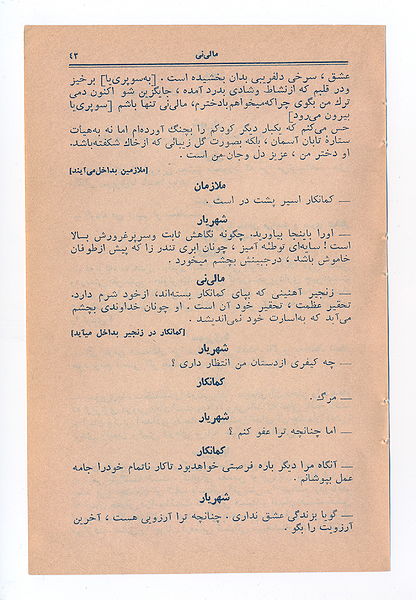 مالی‌نی ۴۳
عشق ، سرخی دلفریبی بدان بخشیده است . [به‌سوپری‌یا] برخیز
ودر قلبم که ازنشاط وشادی بدرد آمده ، جایگزین شو اکنون دمی
ترك من بگوی چراکه‌میخواهم‌بادخترم، مالی‌نی تنها باشم [سوپری‌یا
بیرون می‌رود]
حس می‌کنم که یکبار دیگر کودکم را بچنگ آورده‌ام اما نه به‌هیأت
ستارهٔ تابان آسمان ، بلکه بصورت گل زیبائی که ازخاك شکفته‌باشد.
او دختر من ، عزیز دل وجان من است .
[ملازمین بداخل‌می‌آیند]
ملازمان
— کمانکار اسیر پشت در است .
شهریار
— اورا باینجا بیاورید. چگونه نگاهش ثابت وسرپرغرورش بالا
است ! سایه‌ای توطئه آمیز ، چونان ابری تندر زا که پیش ازطوفان
خاموش باشد ، درجبینش بچشم میخورد .
مالی‌نی
— زنجیر آهنینی که بپای کمانکار بسته‌اند، ازخود شرم دارد.
تحقیر عظمت ، تحقیر خود آن است . او چونان خداوندی بچشم
می‌آید که به‌اسارت خود نمی‌اندیشد .
[کمانکار در زنجیر بداخل میآید]
شهریار
— چه کیفری ازدستان من انتظار داری ؟
کمانکار
— مرگ .
شهریار
— اما چنانچه ترا عفو کنم ؟
کمانکار
— آنگاه مرا دیگر باره فرصتی خواهدبود تاکار ناتمام خودرا جامه
عمل بپوشانم .
شهریار
— گویا بزندگی عشق نداری . چنانچه ترا آرزویی هست ، آخرین
آرزویت را بگو .